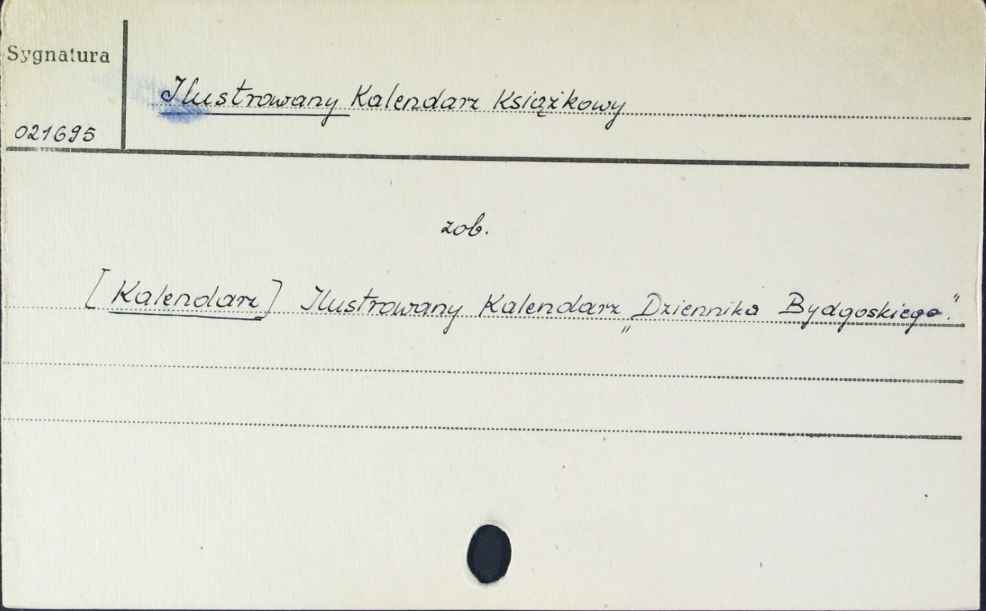 Sygnatura
Ilustrowany Kalendarz Książkowy
021695
zob.
[Kalendarz] Ilustrowany Kalendarz „Dziennika Bydgoskiego."